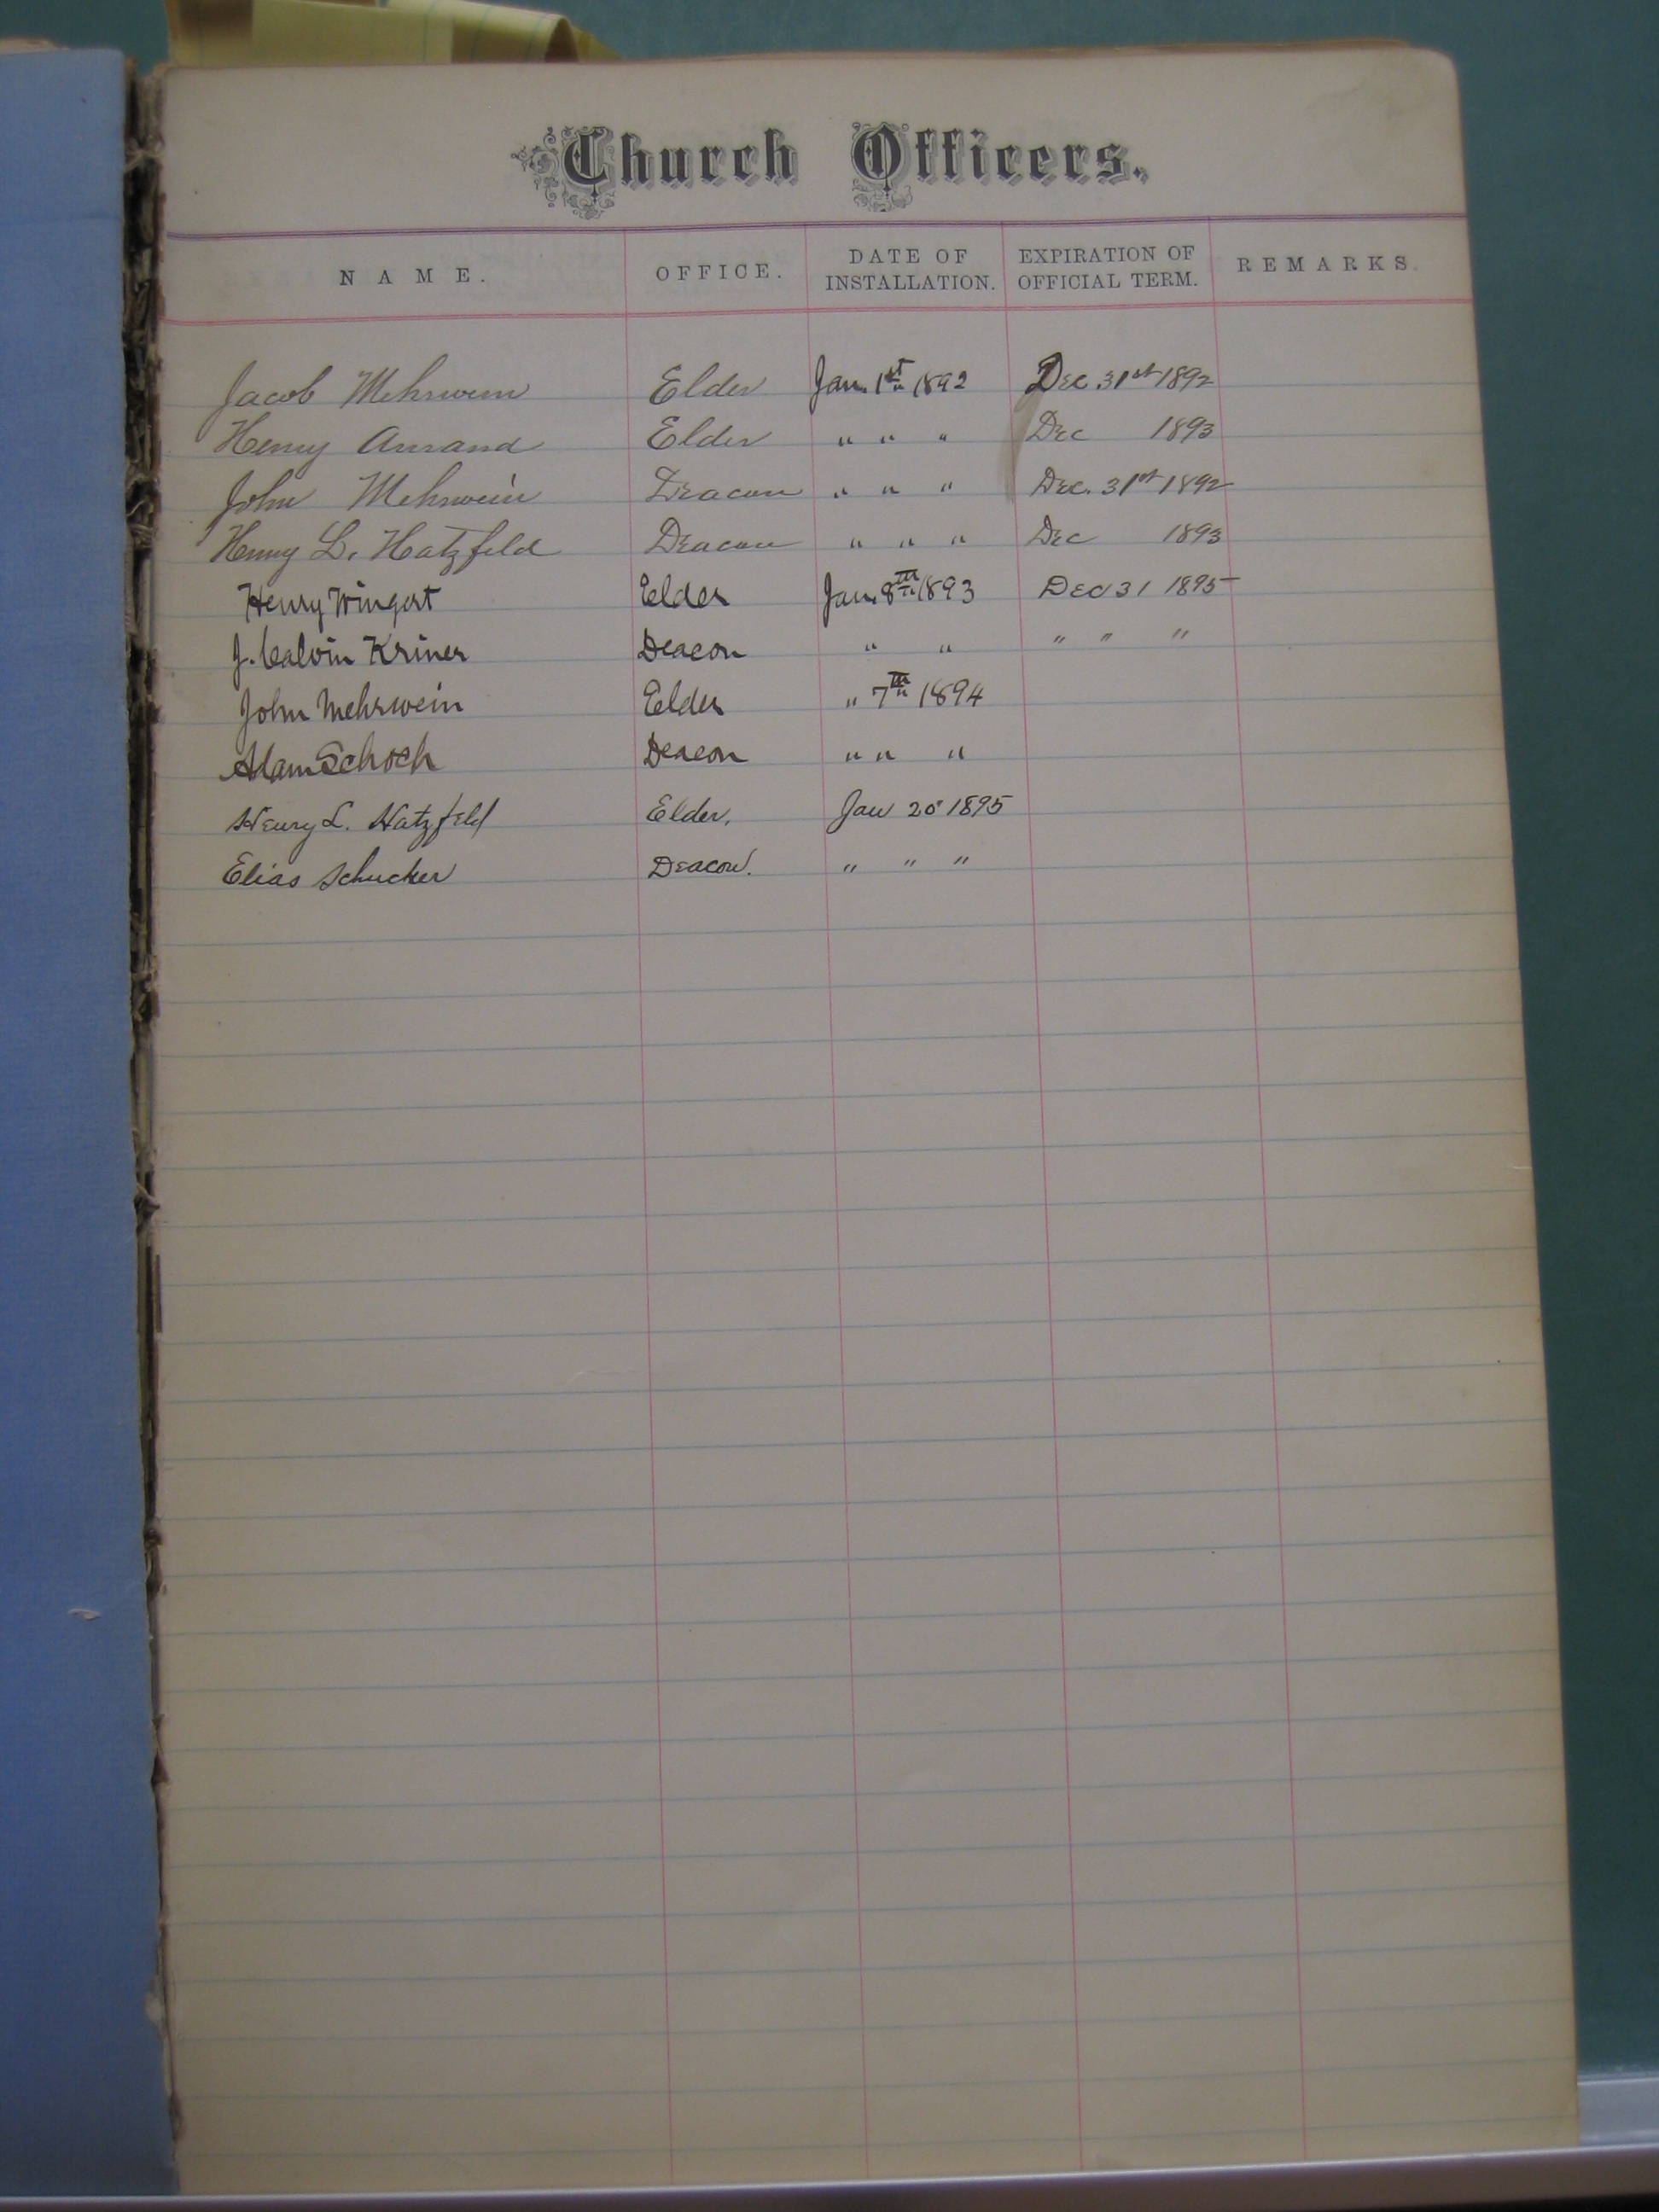 Church Officers.
NAME. OFFICE. DATE OF INSTALLATION. EXPIRATION OF OFFICIAL TERM. REMARKS.
Jacob Mehrwein Elder Jan. 1st 1892 Dec 31st 1892
Henry Elder " " " Dec 1893
John Mehrwein Deacon " " " Dec. 31st 1892
Henry L. Hatzfeld Deacon " " " Dec 1893
Henry Wingert Elder Jan. 8th 1893 Dec 31 1895
J. Calvin Kriner Deacon " " " " "
John Mehrwein Elder " 7th 1894
Adam Schoch Deacon " " "
Henry L. Hatzfeld Elder. Jan 20 1895
Elias Schucker Deacon. " " "